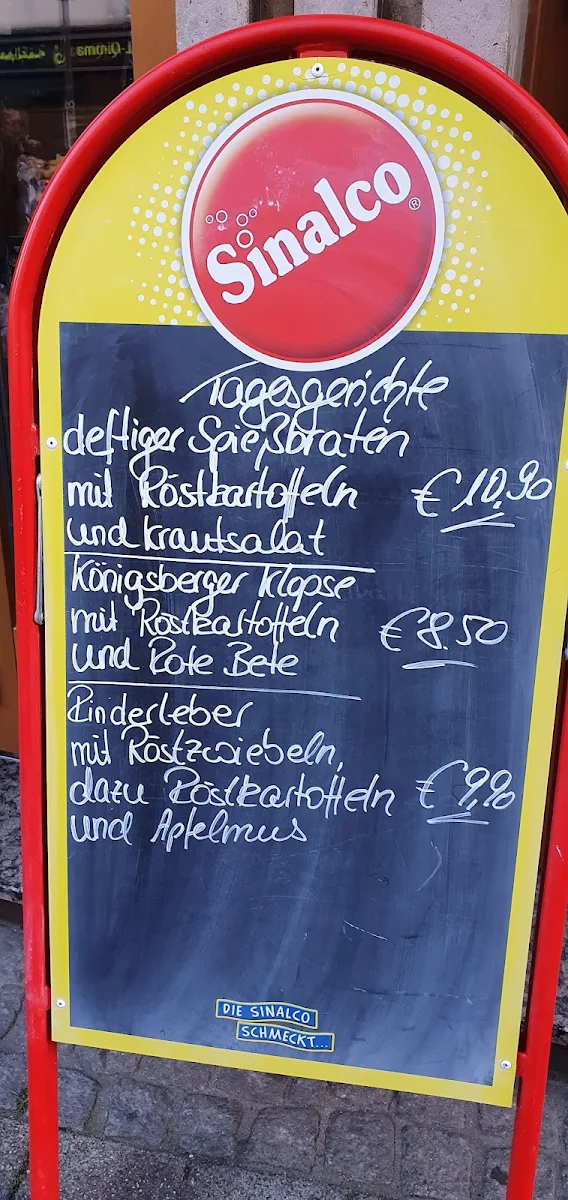 Sinalco®
Tagesgerichte
deftiger Spießbraten
mit Röstkartoffeln € 10,90
und Krautsalat
Königsberger Klopse
mit Röstkartoffeln € 8.50
und Rote Bete
Rinderleber
mit Röstzwiebeln,
dazu Röstkartoffeln € 9,90
und Apfelmus
DIE SINALCO
SCHMECKT...